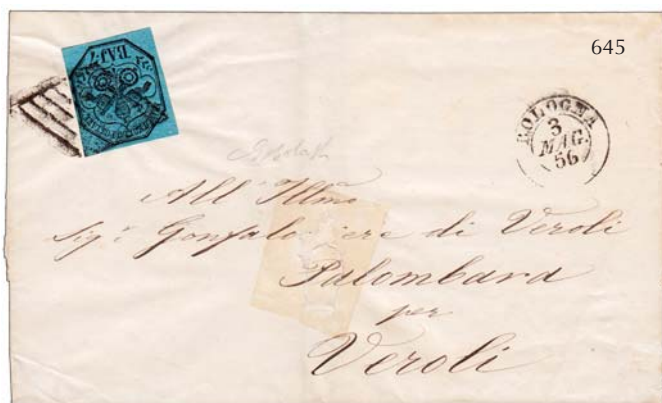 645
BAJ 7
BOLOGNA
3
MAG.
56
All' Illmo
Sigr. Gonfaloniere di Veroli
Palombara
per
Veroli